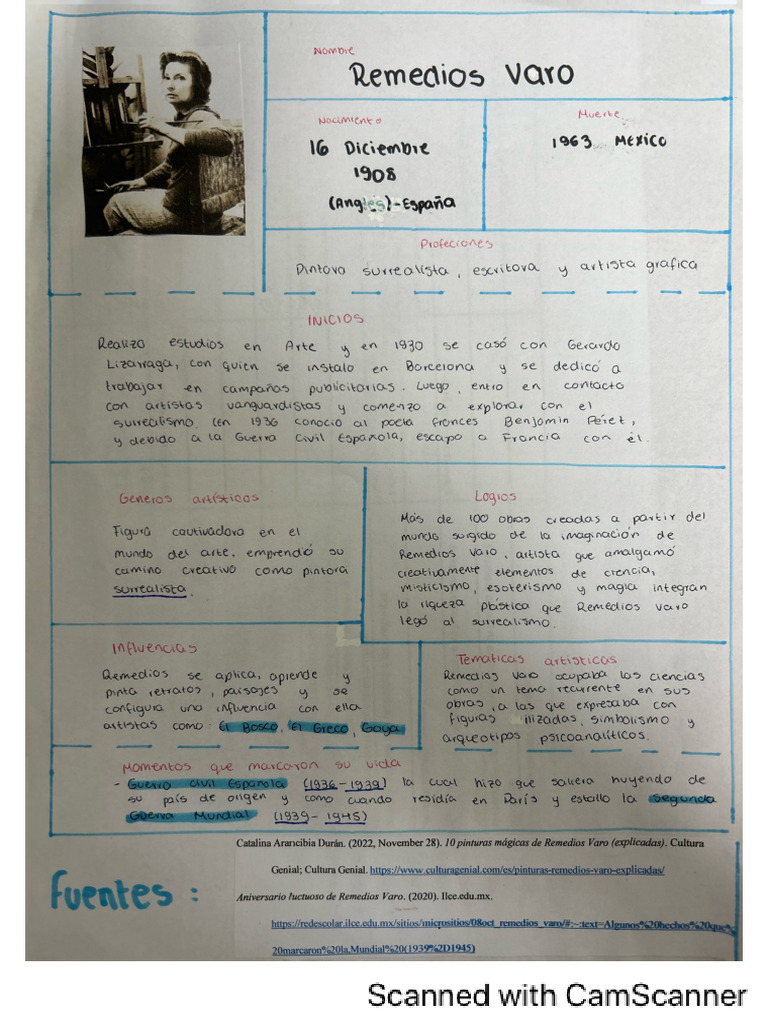 Nombre
Remedios Varo
Nacimiento
16 Diciembre
1908
(Anglés)-España
Muerte
1963 México
Profeciones
Pintora surrealista, escritora y artista grafica
INICIOS
Realizo estudios en Arte y en 1930 se casó con Gerardo
Lizarraga, con quien se instalo en Barcelona y se dedicó a
trabajar en campañas publicitarias. Luego, entro en contacto
con artistas vanguardistas y comenzo a explorar con el
surrealismo. En 1936 conocio al poeta frances Benjamin Péret,
y debido a la Guerra Civil Española, escapo a Francia con él.
Generos artísticos
Figura cautivadora en el
mundo del arte, emprendió su
camino creativo como pintora
surrealista.
Logros
Más de 100 obras creadas a partir del
mundo surgido de la imaginación de
Remedios Varo, artista que amalgamó
creativamente elementos de ciencia,
misticismo, esoterismo y magia integran
la riqueza plástica que Remedios Varo
legó al surrealismo.
Influencias
Remedios se aplica, aprende y
pinta retratos, paisajes y se
configura una influencia con ella
artistas como: El Bosco, El Greco, Goya
Tematicas artisticas
Remedios Varo ocupaba las ciencias
como un tema recurrente en sus
obras, a las que expresaba con
figuras ilizadas, simbolismo y
arqueotipos psicoanalíticos.
Momentos que marcaron su vida
- Guerra Civil Española (1936-1939) la cual hizo que saliera huyendo de
su país de origen y como cuando residía en París y estallo la segunda
Guerra Mundial (1939-1945)
Fuentes:
Catalina Arancibia Durán. (2022, November 28). 10 pinturas mágicas de Remedios Varo (explicadas). Cultura
Genial; Cultura Genial. https://www.culturagenial.com/es/pinturas-remedios-varo-explicadas/
Aniversario luctuoso de Remedios Varo. (2020). Ilce.edu.mx.
https://redescolar.ilce.edu.mx/sitios/micrositios/08oct_remedios_varo/#:~:text=Algunos%20hechos%20que%
20marcaron%20la,Mundial%20(1939%2D1945)
Scanned with CamScanner